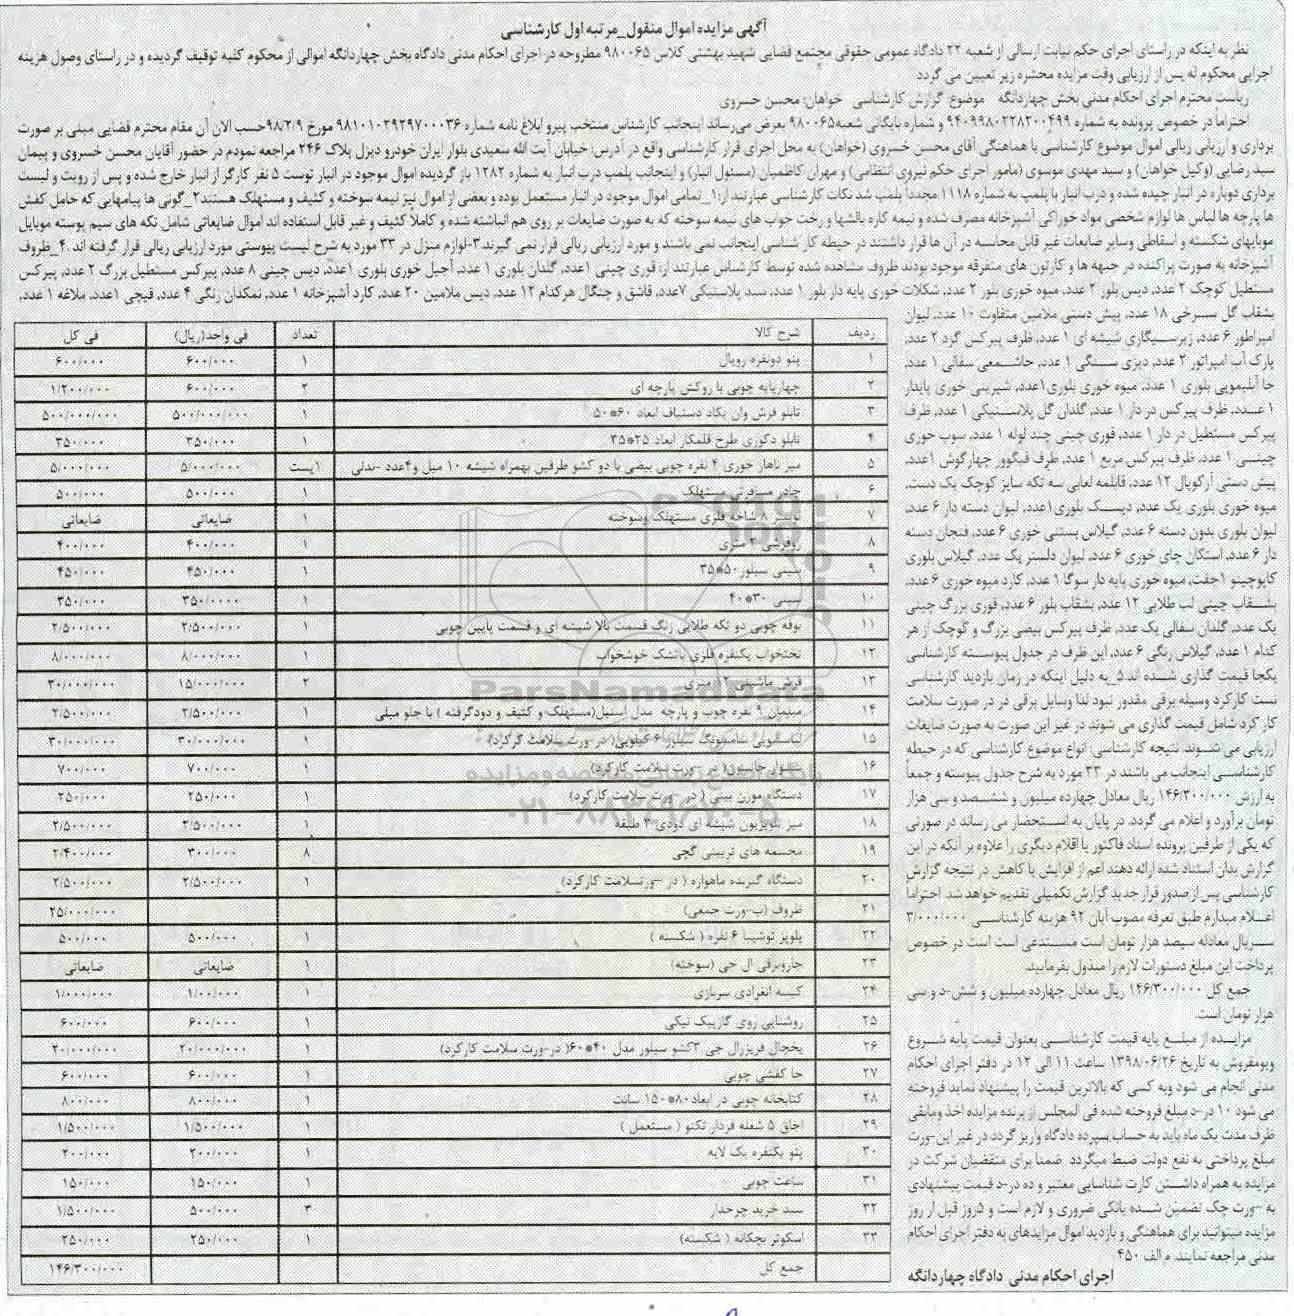 آگهی مزایده اموال منقول_مرتبه اول کارشناسی
نظر به اینکه در راستای اجرای حکم نیابت ارسالی از شعبه ۲۲ دادگاه عمومی حقوقی مجتمع قضایی شهید بهشتی کلاس ۹۸۰۰۶۵ مطروحه در اجرای احکام مدنی دادگاه بخش چهاردانگه اموالی از محکوم کلیه توقیف گردیده و در راستای وصول هزینه
اجرایی محکوم له پس از ارزیابی وقت مزایده محشره زیر تعیین می گردد
ریاست محترم اجرای احکام مدنی بخش چهاردانگه موضوع: گزارش کارشناسی خواهان: محسن خسروی
احتراما در خصوص پرونده به شماره ۹۴۰۹۹۸۰۲۲۸۲۰۰۴۹۹ و شماره بایگانی شعبه۹۸۰۰۶۵ بعرض می‌رساند اینجانب کارشناس منتخب پیرو ابلاغ نامه شماره ۹۸۱۰۱۰۲۹۲۹۷۰۰۰۳۶ مورخ ۹۸/۲/۹حسب الان آن مقام محترم قضایی مبنی بر صورت
برداری و ارزیابی ریالی اموال موضوع کارشناسی با هماهنگی آقای محسن خسروی (خواهان) به محل اجرای قرار کارشناسی واقع در آدرس: خیابان آیت الله سعیدی بلوار ایران خودرو دیزل پلاک ۲۴۶ مراجعه نمودم در حضور آقایان محسن خسروی و پیمان
سید رضایی (وکیل خواهان) و سید مهدی موسوی (مامور اجرای حکم نیروی انتظامی) و مهران کاظمیان (مسئول انبار) و اینجانب پلمپ درب انبار به شماره ۱۲۸۲ باز گردیده اموال موجود در انبار توست ۵ نفر کارگر از انبار خارج شده و پس از رویت و لیست
برداری دوباره در انبار چیده شده و درب انبار با پلمپ به شماره ۱۱۱۸ مجددا پلمپ شد نکات کارشناسی عبارتند از:۱_تمامی اموال موجود در انبار مستعمل بوده و بعضی از اموال نیز نیمه سوخته و کثیف و مستهلک هستند۲_گونی ها پیامهایی که حامل کفش
ها پارچه ها لباس ها لوازم شخصی مواد خوراکی آشپزخانه مصرف شده و نیمه کاره بالشها و رخت خواب های نیمه سوخته که به صورت ضایعات بر روی هم انباشته شده و کاملا کثیف و غیر قابل استفاده اند اموال ضایعاتی شامل تکه های سیم پوسته موبایل
موبایهای شکسته و اسقاطی وسایر ضایعات غیر قابل محاسبه در آن ها قرار داشتند در حیطه کارشناسی اینجانب نمی باشند و مورد ارزیابی ریالی قرار نمی گیرند ۳-لوازم منزل در ۳۳ مورد به شرح لیست پیوستی مورد ارزیابی ریالی قرار گرفته اند.۴_ظروف
آشپزخانه به صورت پراکنده در جبهه ها و کارتون های متفرقه موجود بودند ظروف مشاهده شده توسط کارشناس عبارتند از: قوری چینی ۱عدد، گلدان بلوری ۱ عدد، آجیل خوری بلوری ۱عدد، دیس چینی ۸ عدد، پیرکس مستطیل بزرگ ۲ عدد، پیرکس
مستطیل کوچک ۲ عدد، دیس بلور ۲ عدد، میوه خوری بلور ۲ عدد، شکلات خوری پایه دار بلور ۱ عدد، سبد پلاستیکی ۷عدد، قاشق و چنگال هرکدام ۱۲ عدد، دیس ملامین ۲۰ عدد، کارد آشپزخانه ۱ عدد، نمکدان رنگی ۴ عدد، قیچی ۱عدد، ملاغه ۱ عدد،
بشقاب گل سرخی ۱۸ عدد، پیش دستی ملامین متفاوت ۱۰ عدد، لیوان
امپراطور ۶ عدد، زیرسیگاری شیشه ای ۱ عدد، ظرف پیرکس گرد ۲ عدد،
پارک آب امپراتور ۲ عدد، دیزی سنگی ۱ عدد، جاشمعی سفالی ۱ عدد،
جا آبلیمویی بلوری ۱ عدد، میوه خوری بلوری۱عدد، شیرینی خوری پایدار
۱ عدد، ظرف پیرکس در دار ۱ عدد، گلدان گل پلاستیکی ۱ عدد، ظرف
پیرکس مستطیل در دار ۱ عدد، قوری چینی چند لوله ۱ عدد، سوپ خوری
چینی ۱ عدد، ظرف پیرکس مربع ۱ عدد، ظرف فیگوور چهارگوش ۱عدد،
پیش دستی آرکوپال ۱۲ عدد، قابلمه لعابی سه تکه سایز کوچک یک دست،
میوه خوری بلوری یک عدد، دیسک بلوری۱عدد، لیوان دسته دار ۶ عدد،
لیوان بلوری بدون دسته ۶ عدد، گیلاس بستنی خوری ۶ عدد، فنجان دسته
دار ۶ عدد، استکان چای خوری ۶ عدد، لیوان دلستر یک عدد، گیلاس بلوری
کاپوچینو ۱جفت، میوه خوری پایه دار سوگا ۱ عدد، کارد میوه خوری ۶ عدد،
بشقاب چینی لب طلایی ۱۲ عدد، بشقاب بلور ۶ عدد، قوری بزرگ چینی
یک عدد، گلدان سفالی یک عدد، ظرف پیرکس بیضی بزرگ و کوچک از هر
کدام ۱ عدد، گیلاس رنگی ۶ عدد، این ظرف در جدول پیوسته کارشناسی
یکجا قیمت گذاری شده اند.۵_به دلیل اینکه در زمان بازدید کارشناسی
تست کارکرد وسیله برقی مقدور نبود لذا وسایل برقی در در صورت سلامت
کارکرد شامل قیمت گذاری می شوند در غیر این صورت به صورت ضایعات
ارزیابی می شوند. نتیجه کارشناسی: انواع موضوع کارشناسی که در حیطه
کارشناسی اینجانب می باشند در ۳۳ مورد به شرح جدول پیوسته و جمعاً
به ارزش ۱۴۶/۳۰۰/۰۰۰ ریال معادل چهارده میلیون و ششصد و سی هزار
تومان برآورد و اعلام می گردد. در پایان به استحضار می رساند در صورتی
که یکی از طرفین پرونده اسناد فاکتور یا اقلام دیگری را علاوه بر آنکه در این
گزارش بدان استناد شده ارائه دهند اعم از افزایش یا کاهش در نتیجه گزارش
کارشناسی پس از صدور قرار جدید گزارش تکمیلی تقدیم خواهد شد. احتراماً
اعلام میدارم طبق تعرفه مصوب آبان ۹۲ هزینه کارشناسی ۳/۰۰۰/۰۰۰
ریال معادله سیصد هزار تومان است مستدعی است است در خصوص
پرداخت این مبلغ دستورات لازم را مبذول بفرمایید.
جمع کل ۱۴۶/۳۰۰/۰۰۰ ریال معادل چهارده میلیون و شش-د و سی
هزار تومان است.
مزایده از مبلغ پایه قیمت کارشناسی بعنوان قیمت پایه شروع
وبومفروش به تاریخ ۱۳۹۸/۰۶/۲۶ ساعت ۱۱ الی ۱۲ در دفتر اجرای احکام
مدنی انجام می شود وبه کسی که بالاترین قیمت را پیشنهاد نماید فروخته
می شود ۱۰ در-د مبلغ فروخته شده فی المجلس از برنده مزایده اخذ ومابقی
ظرف مدت یک ماه باید به حساب سپرده دادگاه واریز گردد در غیر این-ورت
مبلغ پرداختی به نفع دولت ضبط میگردد ضمنا برای متقضیان شرکت در
مزایده به همراه داشتن کارت شناسایی معتبر و ده در-د قیمت پیشنهادی
به -ورت چک تضمین شده بانکی ضروری و لازم است و ۵روز قبل از روز
مزایده میتوانید برای هماهنگی و بازدید اموال مزایدهای به دفتر اجرای احکام
مدنی مراجعه نمایند. م الف ۴۵۰
اجرای احکام مدنی دادگاه چهاردانگه
ردیف شرح کالا تعداد فی واحد(ریال) فی کل
۱ پتو دونفره رویال ۱ ۶۰۰/۰۰۰ ۶۰۰/۰۰۰
۲ چهارپایه چوبی با روکش پارچه ای ۲ ۶۰۰/۰۰۰ ۱/۲۰۰/۰۰۰
۳ تابلو فرش وان یکاد دستباف ابعاد ۶۰*۵۰ ۱ ۵۰۰/۰۰۰/۰۰۰ ۵۰۰/۰۰۰/۰۰۰
۴ تابلو دکوری طرح قلمکار ابعاد ۲۵*۳۵ ۱ ۳۵۰/۰۰۰ ۳۵۰/۰۰۰
۵ میز ناهار خوری ۴ نفره چوبی بیضی با دو کشو طرفین بهمراه شیشه ۱۰ میل و۴عدد -ندلی ۱ست ۵/۰۰۰/۰۰۰ ۵/۰۰۰/۰۰۰
۶ چادر مسافرتی مستهلک ۱ ۵۰۰/۰۰۰ ۵۰۰/۰۰۰
۷ شاخه فلزی مستهلک وسوخته ۱ ضایعاتی ضایعاتی
۸ روفرشی ۳ متری ۱ ۴۰۰/۰۰۰ ۴۰۰/۰۰۰
۹ سینی سیلور۵۰*۳۵ ۱ ۴۵۰/۰۰۰ ۴۵۰/۰۰۰
۱۰ سینی ۳۰*۴۰ ۱ ۳۵۰/۰۰۰۰ ۳۵۰/۰۰۰
۱۱ بوفه چوبی دو تکه طلایی رنگ قسمت بالا شیشه ای و قسمت پایین چوبی ۱ ۲/۵۰۰/۰۰۰ ۲/۵۰۰/۰۰۰
۱۲ تختخواب یکنفره فلزی باتشک خوشخواب ۱ ۸/۰۰۰/۰۰۰ ۸/۰۰۰/۰۰۰
۱۳ فرش ماشینی ۱۲متری ۲ ۱۵/۰۰۰/۰۰۰ ۳۰/۰۰۰/۰۰۰
۱۴ مبلمان ۹ نفره چوب و پارچه مدل استیل(مستهلک و کثیف و دودگرفته ) با جلو مبلی ۱ ۲/۵۰۰/۰۰۰ ۲/۵۰۰/۰۰۰
۱۵ لباسشویی سامسونگ سیلور ۶ کیلویی( در-ورت سلامت کرکرد) ۱ ۳۰/۰۰۰/۰۰۰ ۳۰/۰۰۰/۰۰۰
۱۶ ( در -ورت سلامت کارکرد) ۱ ۷۰۰/۰۰۰ ۷۰۰/۰۰۰
۱۷ دستگاه موزن بینی ( در -ورت سلامت کارکرد) ۱ ۲۵۰/۰۰۰ ۲۵۰/۰۰۰
۱۸ میز تلویزیون شیشه ای دودی ۳ طبقه ۱ ۲/۵۰۰/۰۰۰ ۲/۵۰۰/۰۰۰
۱۹ مجسمه های تزیینی گچی ۸ ۳۰۰/۰۰۰ ۲/۴۰۰/۰۰۰
۲۰ دستگاه گیرنده ماهواره ( در -ورتسلامت کارکرد) ۱ ۲/۵۰۰/۰۰۰ ۲/۵۰۰/۰۰۰
۲۱ ظروف (ب-ورت جمعی) ۲۵/۰۰۰/۰۰۰
۲۲ پلوپز توشیبا ۶ نفره ( شکسته ) ۱ ۵۰۰/۰۰۰ ۵۰۰/۰۰۰
۲۳ جاروبرقی ال جی (سوخته) ۱ ضایعاتی ضایعاتی
۲۴ کیسه انفرادی سربازی ۱ ۱/۰۰/۰۰۰ ۱/۰۰۰/۰۰۰
۲۵ روشنایی روی گازپیک نیکی ۱ ۶۰۰/۰۰۰ ۶۰۰/۰۰۰
۲۶ یخچال فریزرال جی ۳کشو سیلور مدل ۴۰*۶۰( در-ورت سلامت کارکرد) ۱ ۲۰/۰۰۰/۰۰۰ ۲۰/۰۰۰/۰۰۰
۲۷ جا کفشی چوبی ۱ ۶۰۰/۰۰۰ ۶۰۰/۰۰۰
۲۸ کتابخانه چوبی در ابعاد۸۰*۱۵۰ سانت ۱ ۸۰۰/۰۰۰ ۸۰۰/۰۰۰
۲۹ اجاق ۵ شعله فردار تکنو ( مستعمل ) ۱ ۱/۵۰۰/۰۰۰ ۱/۵۰۰/۰۰۰
۳۰ پتو یکنفره یک لایه ۱ ۲۰۰/۰۰۰ ۲۰۰/۰۰۰
۳۱ ساعت چوبی ۱ ۱۵۰/۰۰۰ ۱۵۰/۰۰۰
۳۲ سبد خرید چرخدار ۳ ۵۰۰/۰۰۰ ۱/۵۰۰/۰۰۰
۳۳ اسکوتر بچگانه ( شکسته) ۱ ۲۵۰/۰۰۰ ۲۵۰/۰۰۰
جمع کل ۱۴۶/۳۰۰/۰۰۰
ParsNamadData